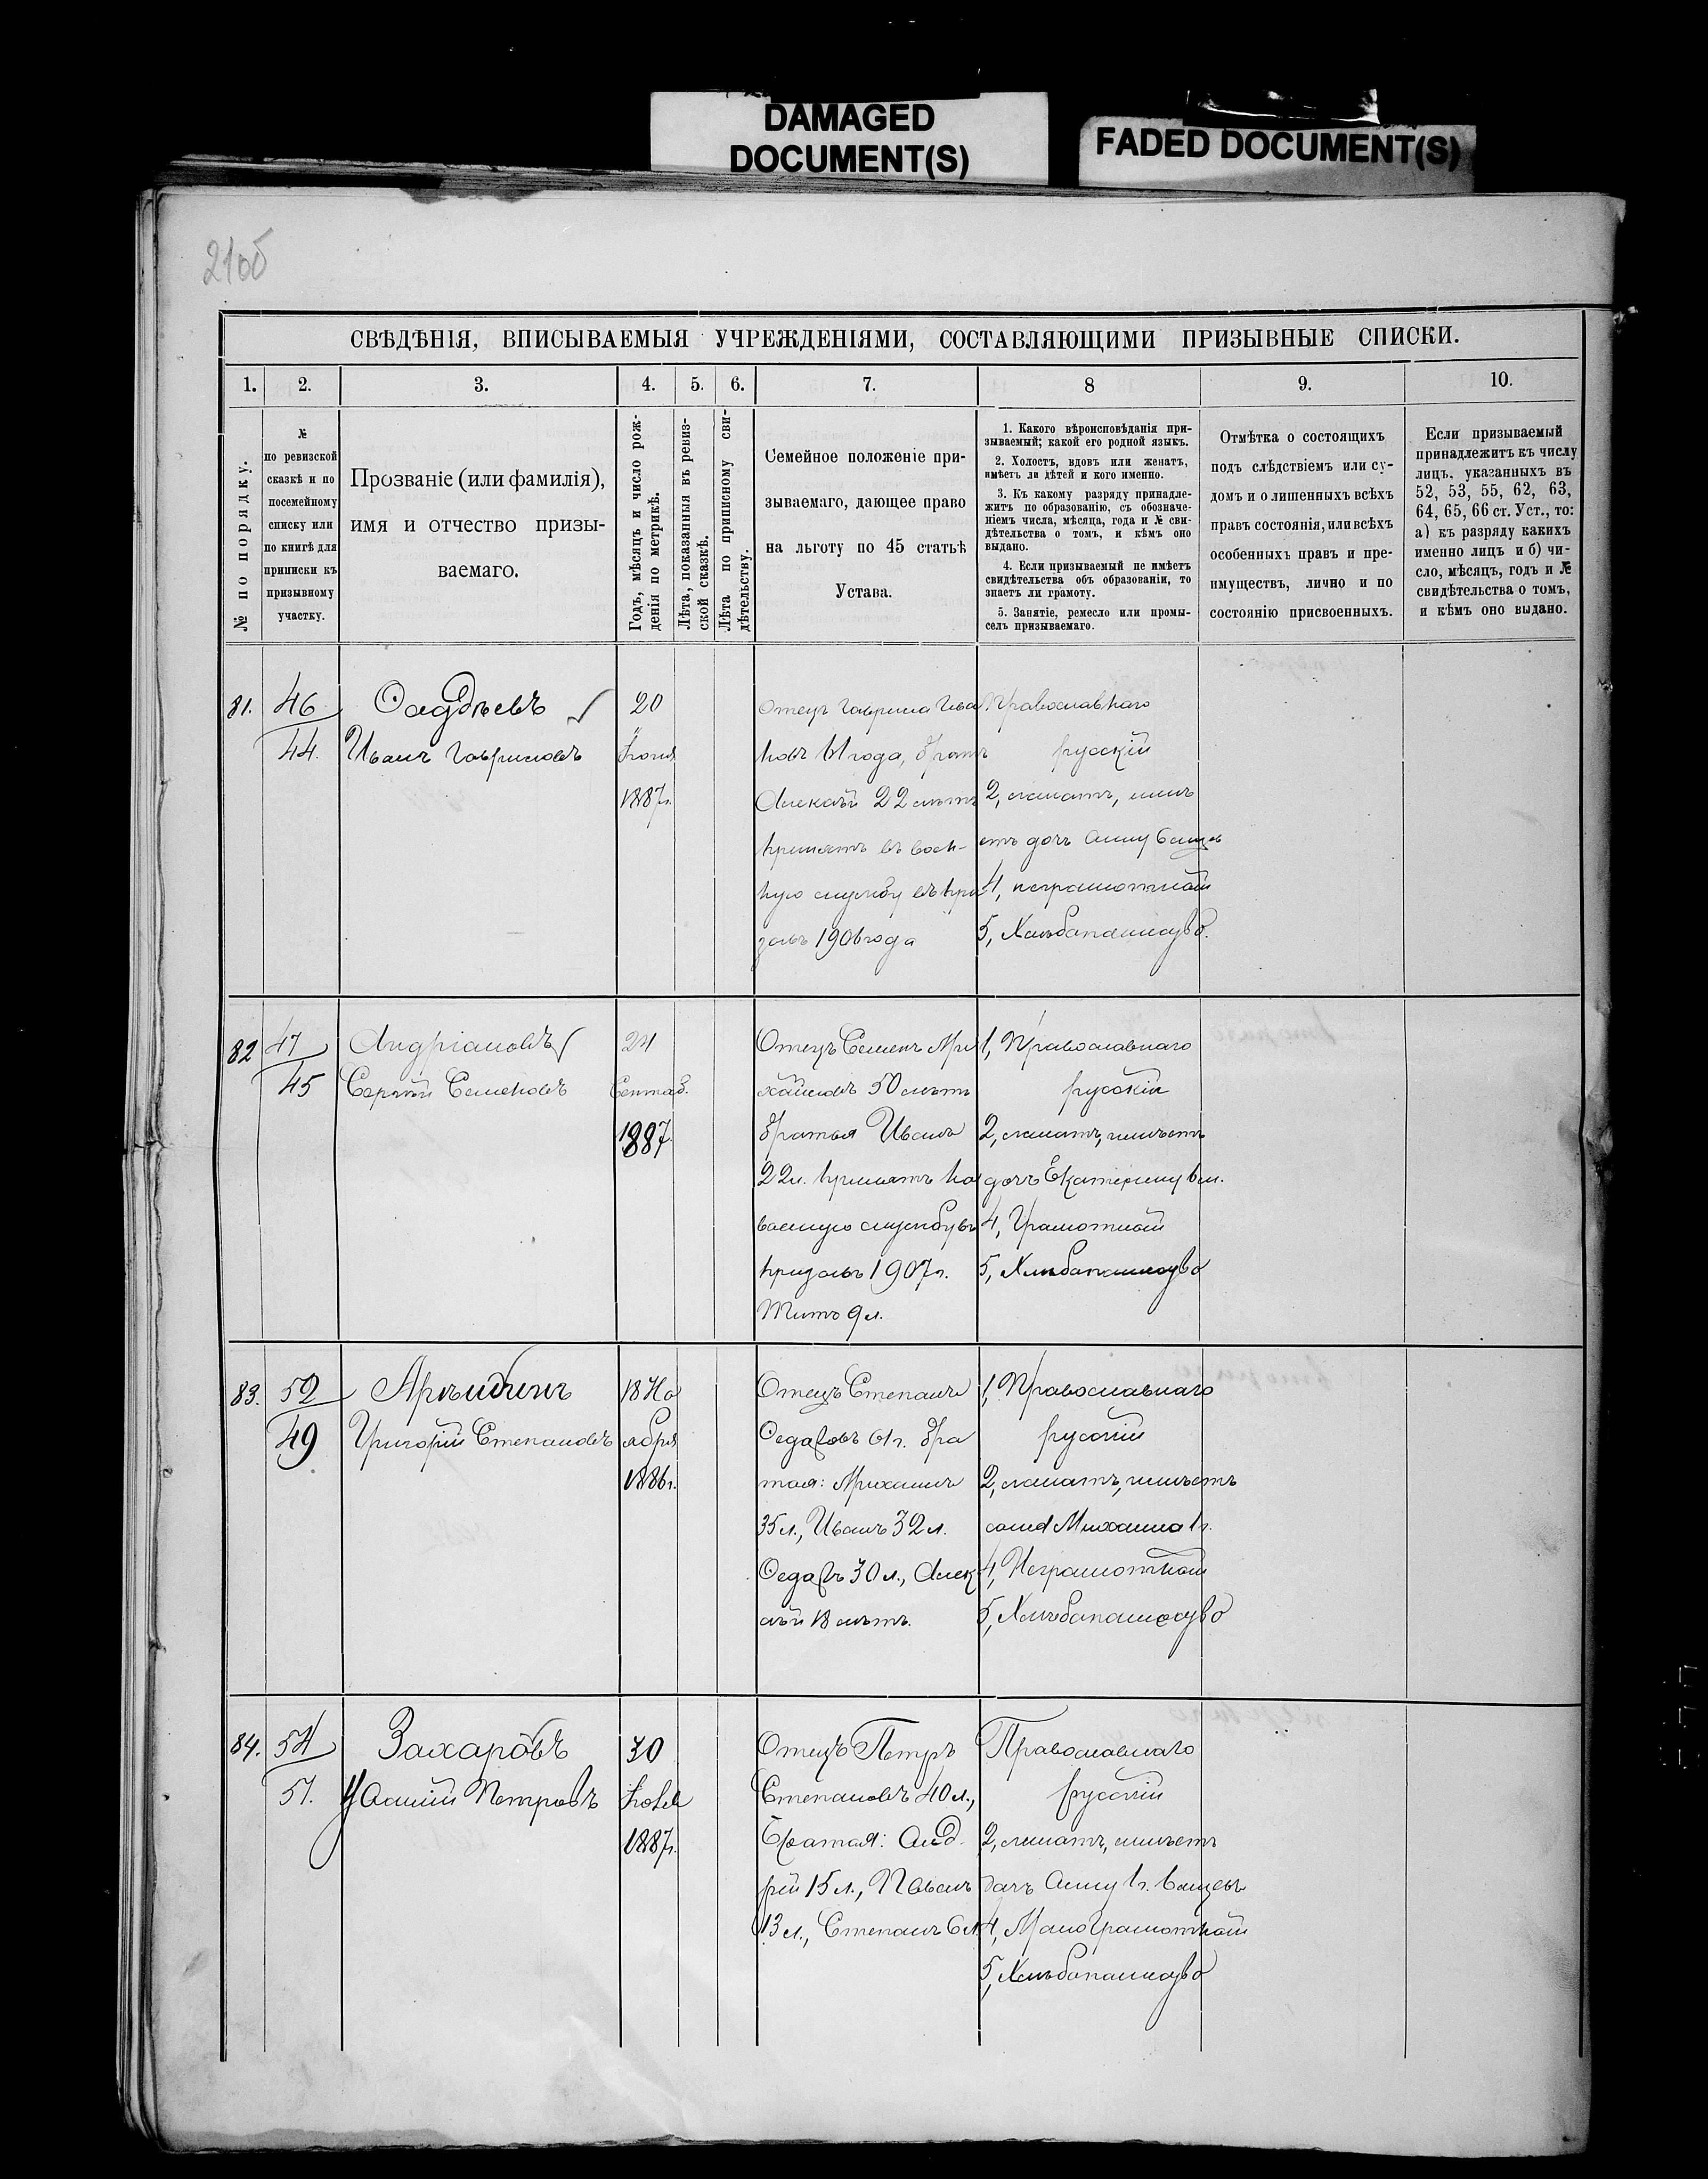 DAMAGED
DOCUMENT(S)
FADED DOCUMENT(S)
210б
СВѢДѢНІЯ, ВПИСЫВАЕМЫЯ УЧРЕЖДЕНІЯМИ, СОСТАВЛЯЮЩИМИ ПРИЗЫВНЫЕ СПИСКИ.
1. 2. 3. 4. 5. 6. 7. 8 9. 10.
№ по порядку.
№
по ревизской
сказкѣ и по
посемейному
списку или
по книгѣ для
приписки къ
призывному
участку.
Прозваніе (или фамилія),
имя и отчество призы-
ваемаго.
Годъ, мѣсяцъ и число рож-
денія по метрикѣ.
Лѣта, показанныя въ ревиз-
ской сказкѣ.
Лѣта по приписному сви-
дѣтельству.
Семейное положеніе при-
зываемаго, дающее право
на льготу по 45 статьѣ
Устава.
1. Какого вѣроисповѣданія при-
зываемый; какой его родной языкъ.
2. Холостъ, вдовъ или женатъ,
имѣетъ ли дѣтей и кого именно.
3. Къ какому разряду принадле-
житъ по образованію, съ обозначе-
ніемъ числа, мѣсяца, года и № сви-
дѣтельства о томъ, и кѣмъ оно
выдано.
4. Если призываемый не имѣетъ
свидѣтельства объ образованіи, то
знаетъ ли грамоту.
5. Занятіе, ремесло или промы-
селъ призываемаго.
Отмѣтка о состоящихъ
подъ слѣдствіемъ или су-
домъ и о лишенныхъ всѣхъ
правъ состоянія, или всѣхъ
особенныхъ правъ и пре-
имуществъ, лично и по
состоянію присвоенныхъ.
Если призываемый
принадлежитъ къ числу
лицъ, указанныхъ въ
52, 53, 55, 62, 63,
64, 65, 66 ст. Уст., то:
а) къ разряду какихъ
именно лицъ и б) чи-
сло, мѣсяцъ, годъ и №
свидѣтельства о томъ,
и кѣмъ оно выдано.
81.
46
44.
Иванъ Гавриловъ
20
1887г.
Отецъ Гаврила Ива
новъ года, братъ
Алексѣй 22 лѣтъ
принятъ въ воен-
ную службу въ при
зывъ года
Православнаго
русскій
2, женатъ, имѣ
етъ дочь Анну
4, неграмотный
5, Хлѣбопашество.
82
47
45
Андріановъ
Сергѣй Семеновъ
24
Сентяб.
1887
Отецъ Семенъ Ми
хайловъ 50 лѣтъ
братья Иванъ
22л. принятъ на
военную службу въ
призывъ 1907г.
Титъ 9л.
1, Православнаго
русскій
2, женатъ, имѣетъ
дочь Екатерину
4, Грамотный
5, Хлѣбопашество
83.
52
49
Григорій Степановъ
18 Но
ября
1886г.
Отецъ Степанъ
Федоровъ 61г. бра
тья: Михаилъ
35л., Иванъ 32л.
Федоръ 30л., Алек
сѣй 18 лѣтъ.
1, Православнаго
русскій
2, женатъ, имѣетъ
сына Михаила 1г.
4, Неграмотный
5, Хлѣбопашество
84.
54
51.
Захаровъ
Петровъ
30
1887г.
Отецъ Петръ
Степановъ 40л.,
Братья: Анд
рей 15л., Иванъ
13л., Степанъ 6л.
Православнаго
русскій
2, женатъ, имѣетъ
дочь Анну 1г.
4, Малограмотный
5, Хлѣбопашество